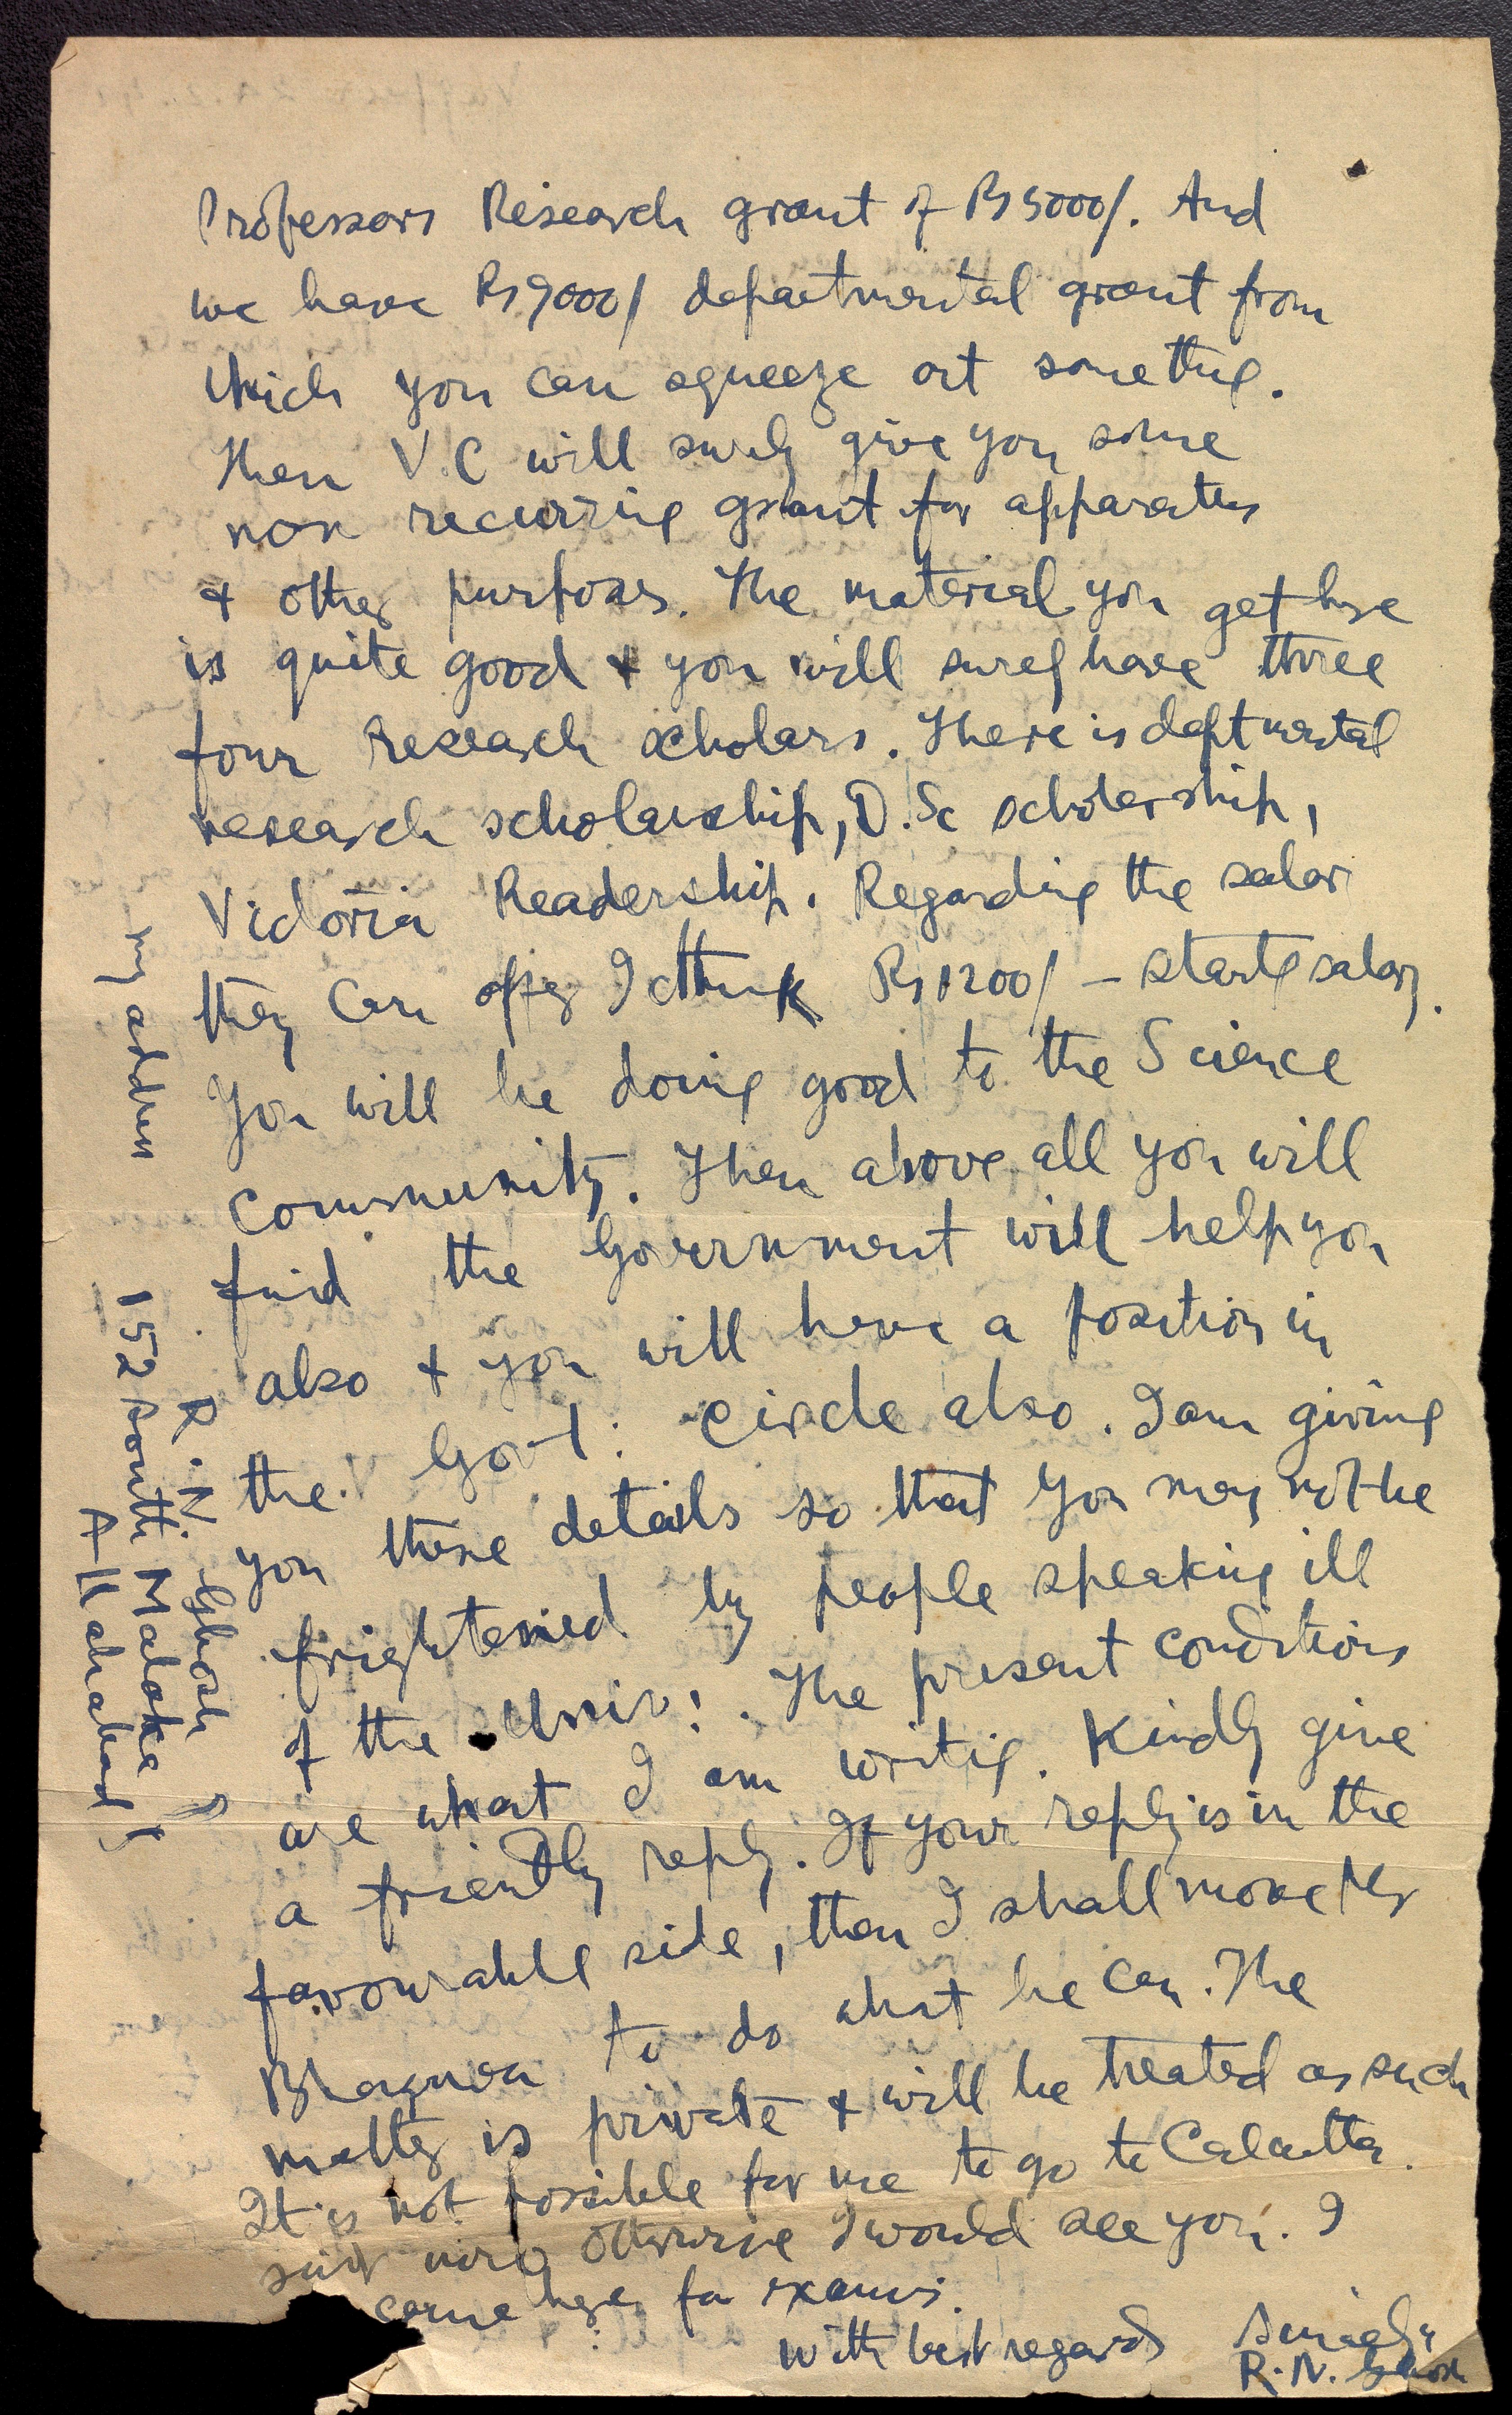 Professors Research grant of Rs 5000/. And
we have Rs 9000/ departmental grant from
which you can squeeze out something.
Then V.C will surely give you some
non recurring grant for apparatus
& other purposes. The material you get here
is quite good & you will surely have three
four research scholars. There is deptmental
research scholarship, D.Sc scholarship,
Victoria Readership. Regarding the salary
they can offer I think Rs 1200/ - starting salary.
You will be doing good to the Science
Community. Then above all you will
find the Government will help you
also & you will have a position in
the Govt: circle also. I am giving
you these details so that you may not be
frightened by people speaking ill
of the Univ:. The present conditions
are what I am writing. Kindly give
a friendly reply. If your reply is in the
favourable side, then I shall move Mr
Bhagwan to do what he can. The
matter is private & will be treated as such
It is not possible for me to go to Calcutta.
just now otherwise I would see you. I
came here for exams.
with best regards Sincerely
R.N. Ghosh
my address
R. N. Ghosh
152 South Malaka
Allahabad